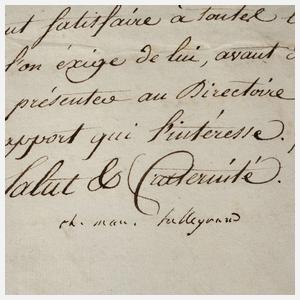 ut satisfaire à toutes
l'on éxige de lui, avant d
présentée au Directoire
apport qui l'intéresse.
Salut & Fraternité.
ch. mau. talleyrand